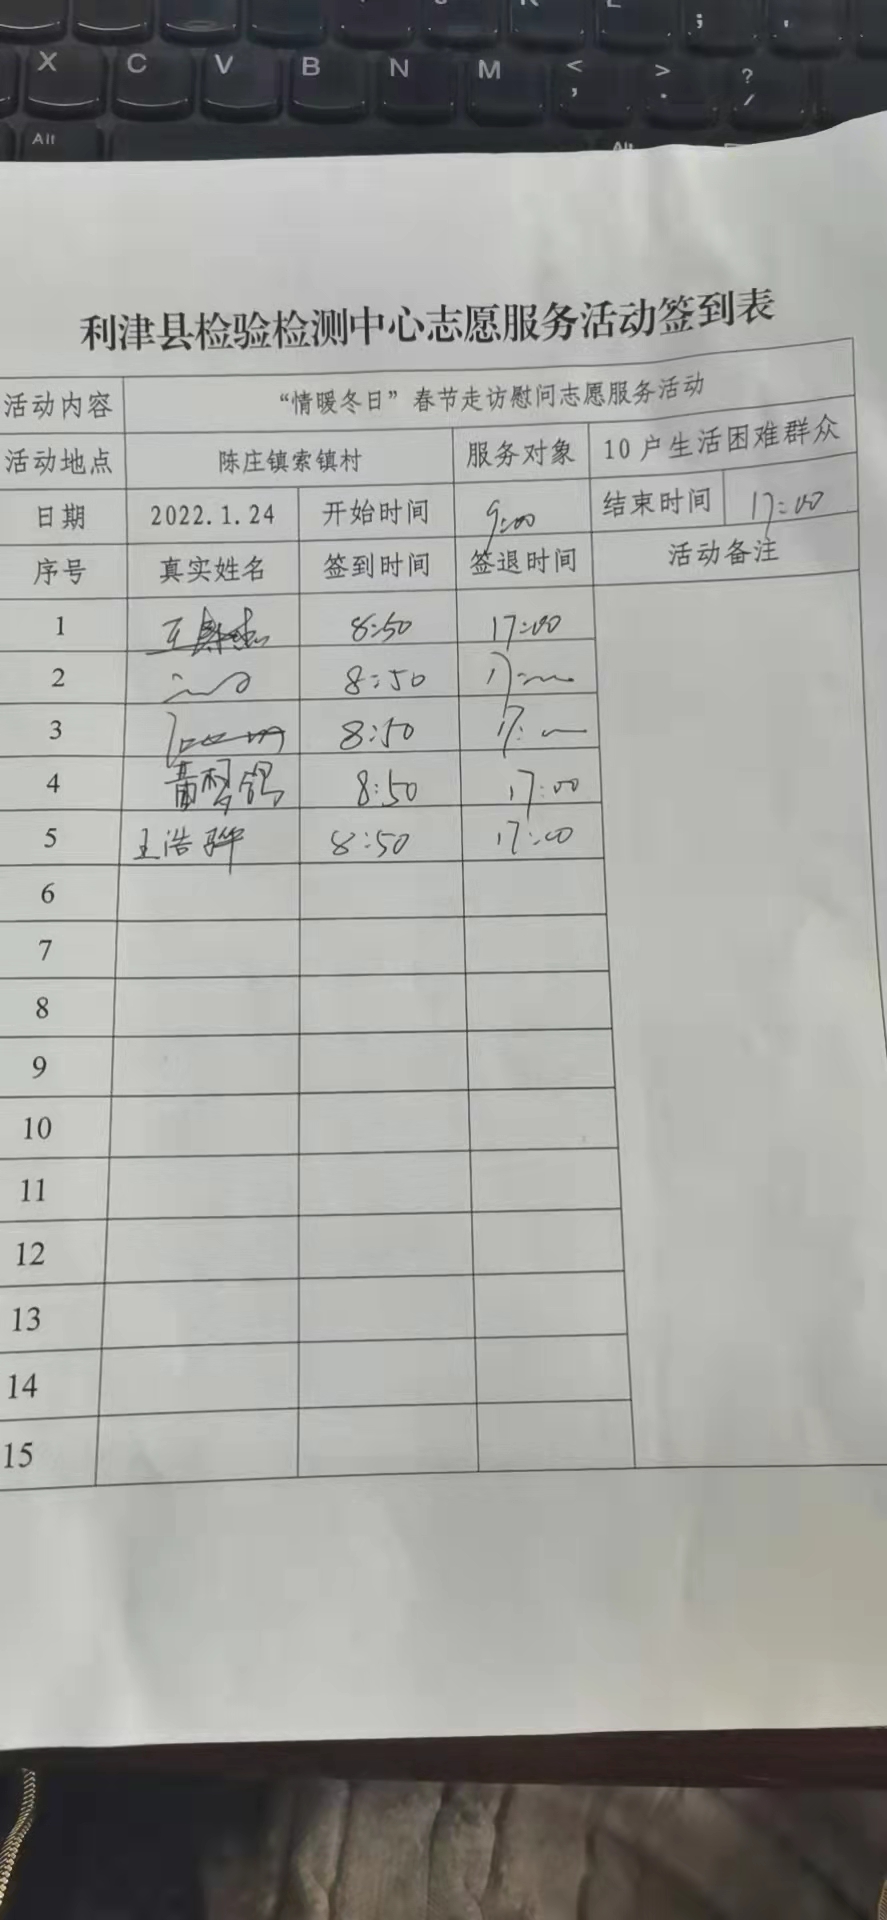 X C V B N M < , > . ? /
Alt
利津县检验检测中心志愿服务活动签到表
活动内容 “情暖冬日”春节走访慰问志愿服务活动
活动地点 陈庄镇索镇村 服务对象 10户生活困难群众
日期 2022.1.24 开始时间 9:00 结束时间 17:00
序号 真实姓名 签到时间 签退时间 活动备注
1 8:50 17:00
2 8:50 17:
3 8:50 17:
4 8:50 17:00
5 王浩骅 8:50 17:00
6
7
8
9
10
11
12
13
14
15